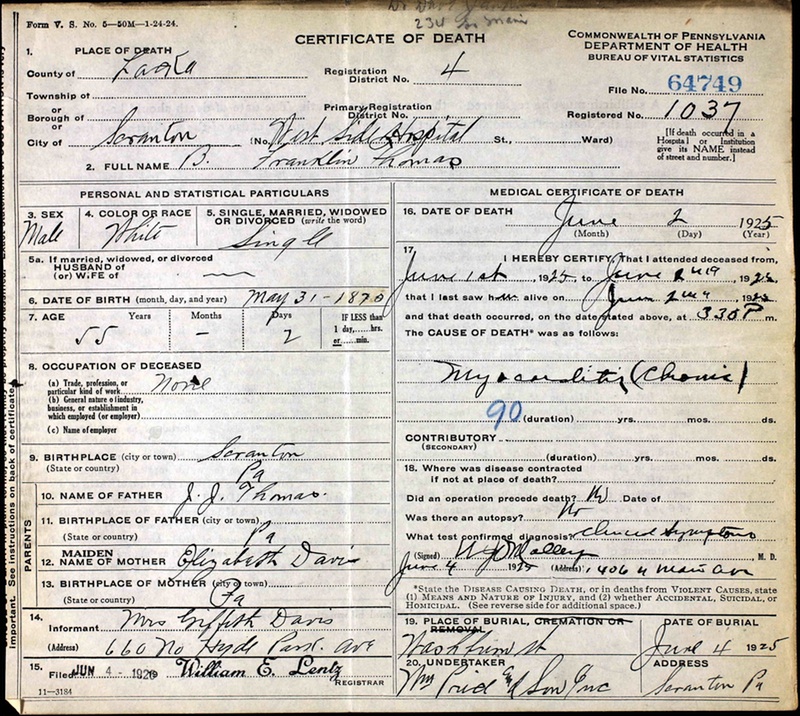 234 So Main
Form V. S. No. 5—50M—1-24-24.
CERTIFICATE OF DEATH
COMMONWEALTH OF PENNSYLVANIA
DEPARTMENT OF HEALTH
BUREAU OF VITAL STATISTICS
1. PLACE OF DEATH
County of Lacka
Registration District No. 4
File No. 64749
Township of
or
Borough of
Primary Registration District No.
Registered No. 1037
or
City of Scranton (No. West Side Hospital St., Ward)
[If death occurred in a Hospital or Institution give its NAME instead of street and number.]
2. FULL NAME B. Franklin Thomas
PERSONAL AND STATISTICAL PARTICULARS
3. SEX Male
4. COLOR OR RACE White
5. SINGLE, MARRIED, WIDOWED OR DIVORCED (write the word) Single
5a. If married, widowed, or divorced
HUSBAND of
(or) WIFE of —
6. DATE OF BIRTH (month, day, and year) May 31-1870
7. AGE 55 Years - Months 2 Days
IF LESS than 1 day,....hrs. or....min.
8. OCCUPATION OF DECEASED
(a) Trade, profession, or particular kind of work None
(b) General nature of industry, business, or establishment in which employed (or employer)
(c) Name of employer
9. BIRTHPLACE (city or town) Scranton
(State or country) Pa
PARENTS
10. NAME OF FATHER J. J. Thomas.
11. BIRTHPLACE OF FATHER (city or town)
(State or country) Pa
12. MAIDEN NAME OF MOTHER Elizabeth Davis
13. BIRTHPLACE OF MOTHER (city or town)
(State or country) Pa
14. Informant Mrs Griffith Davis
(Address) 660 No Hyde Park. Ave
15. Filed JUN 4 - 1925 William E. Lentz
REGISTRAR
11—3184
MEDICAL CERTIFICATE OF DEATH
16. DATE OF DEATH June 2 1925
(Month) (Day) (Year)
17. I HEREBY CERTIFY, That I attended deceased from,
June 1st 1925 to June 2nd 1925
that I last saw him alive on June 2nd 1925
and that death occurred, on the date stated above, at 330 P m.
The CAUSE OF DEATH* was as follows:
Myocarditis (Chronic)
90 (duration) yrs. mos. ds.
CONTRIBUTORY
(SECONDARY)
(duration) yrs. mos. ds.
18. Where was disease contracted
if not at place of death?
Did an operation precede death? No Date of
Was there an autopsy? No
What test confirmed diagnosis? Clinical Symptoms
(Signed) M. D.
June 4 1925 (Address) 1406 Main Ave
*State the DISEASE CAUSING DEATH, or in deaths from VIOLENT CAUSES, state (1) MEANS AND NATURE OF INJURY, and (2) whether ACCIDENTAL, SUICIDAL, or HOMICIDAL. (See reverse side for additional space.)
19. PLACE OF BURIAL, CREMATION OR REMOVAL
Washburn St
DATE OF BURIAL
June 4 1925
20. UNDERTAKER
Wm Price & Son Inc
ADDRESS
Scranton Pa
important. See instructions on back of certificate.